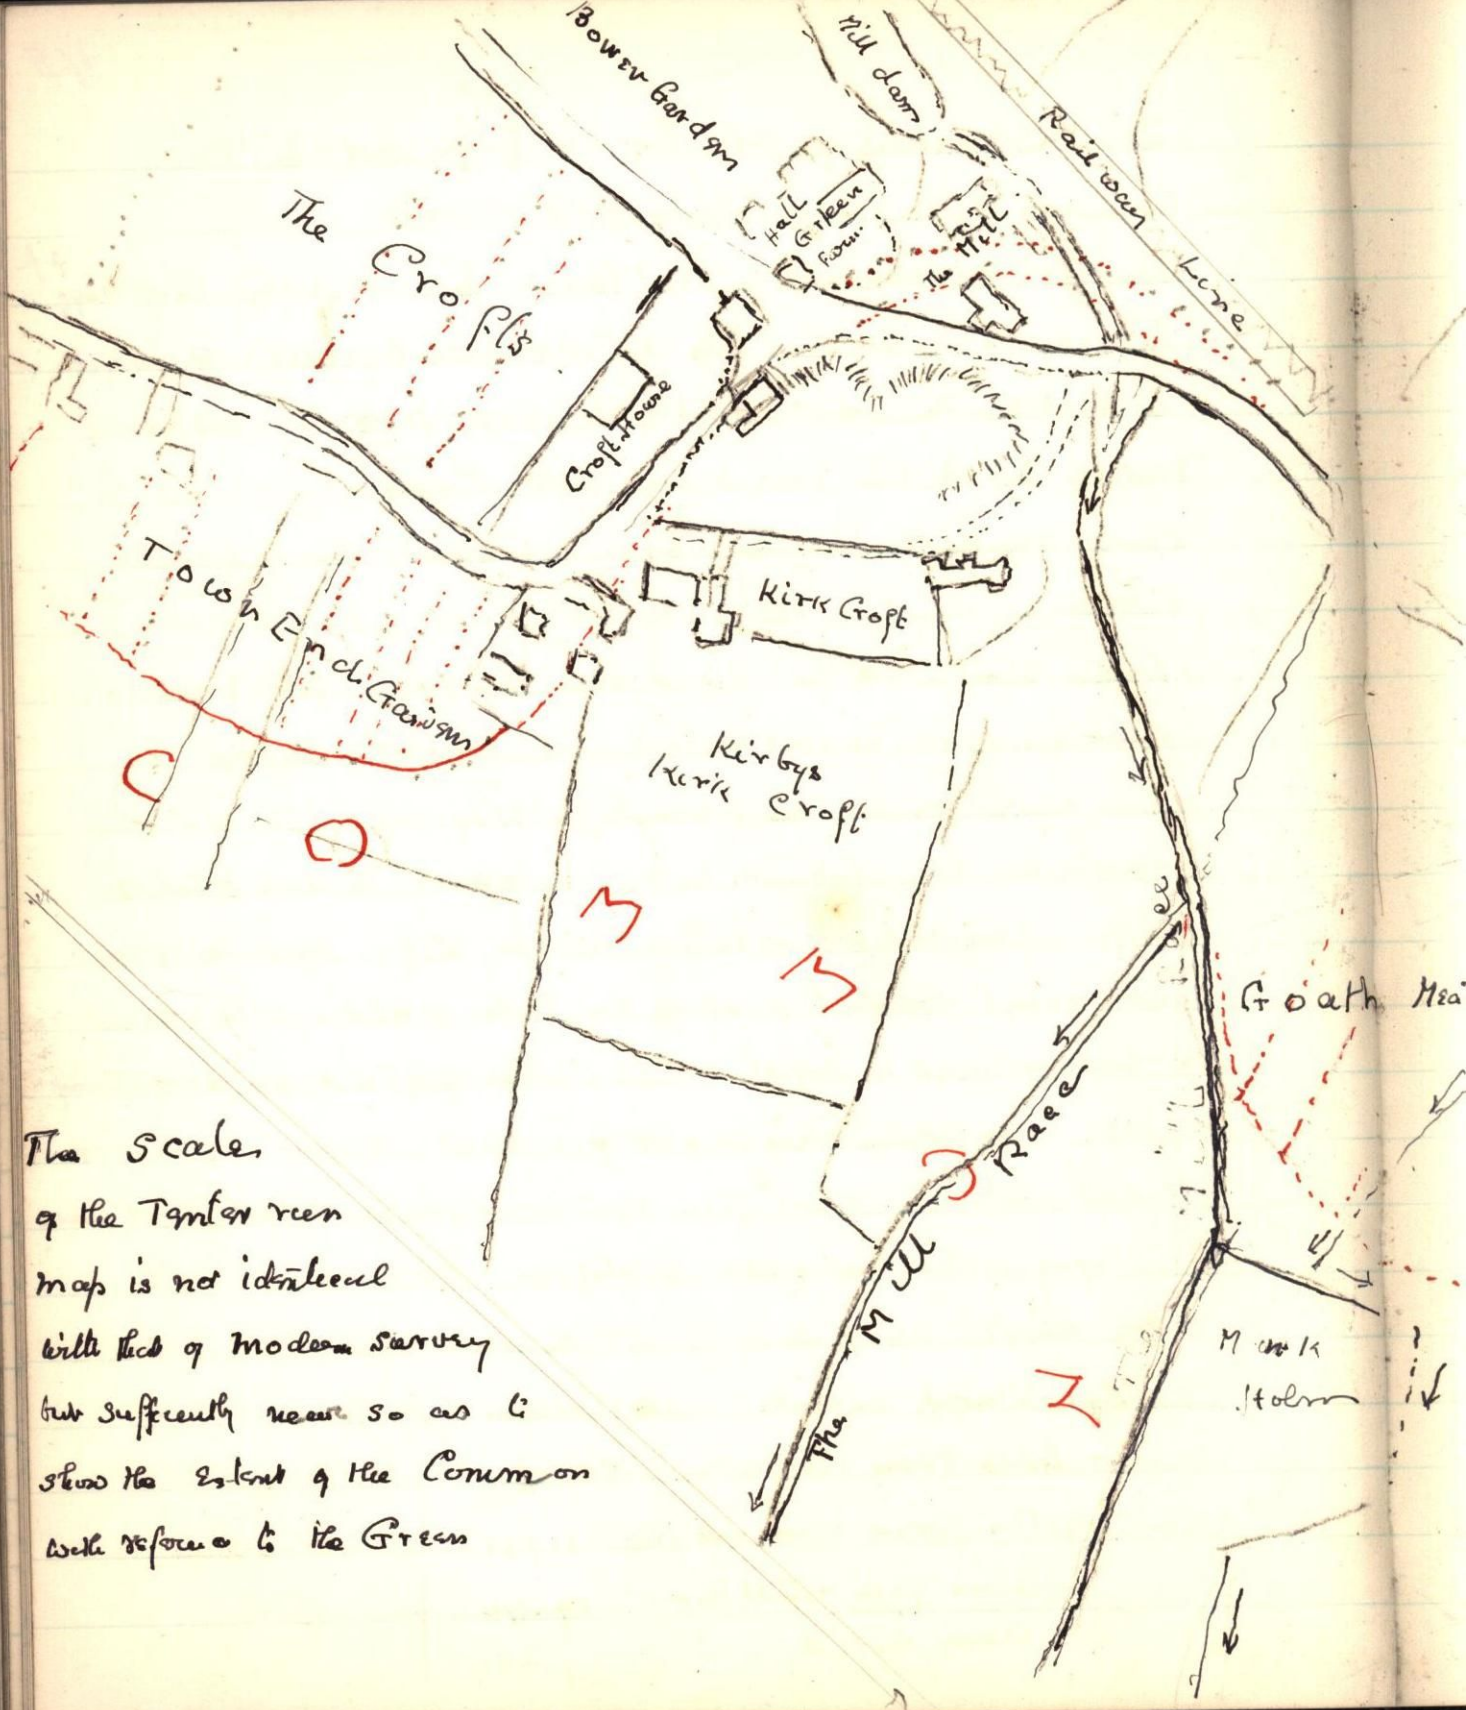 Bower Garden
Mill dam
Railway Line
The Crofts
Hall
Green
Farm
The Mill
Croft House
Town End Garden
Kirk Croft
Kirbys
Kirk Croft
C O M M O N
Goath Mea
The Mill Race
Holm
The Scale
of the
map is not identical
with that of modern survey
but sufficently near so as to
show the Extent of the Common
with to the Green